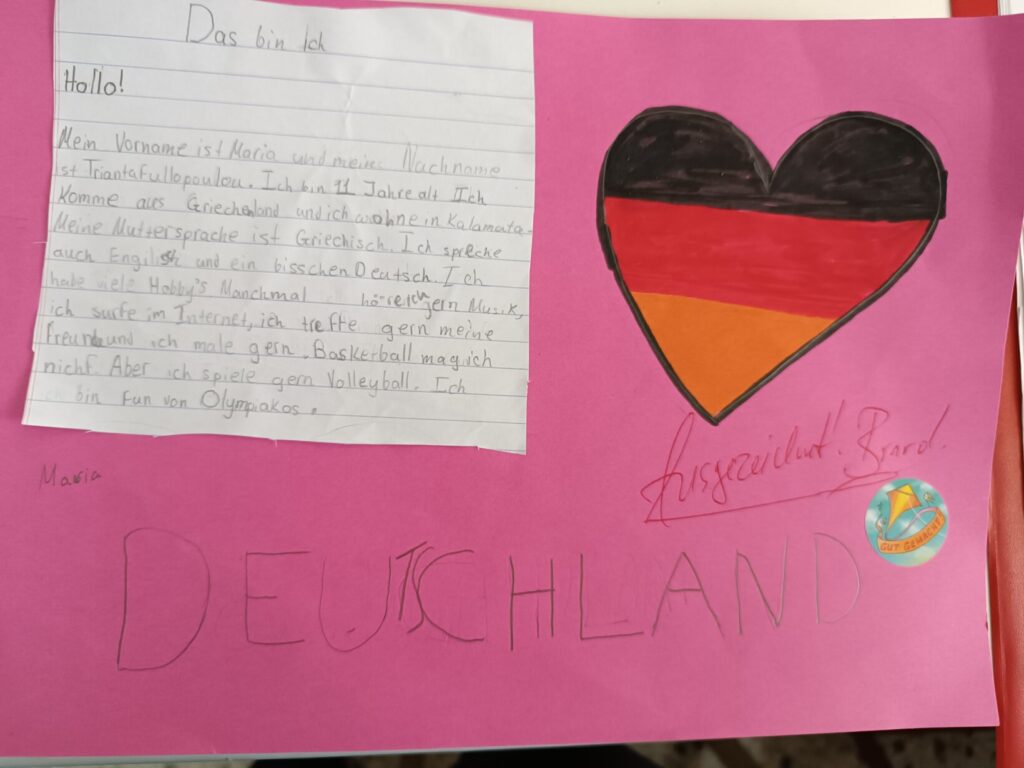 Das bin Ich
Hallo!
Mein Vorname ist Maria und meine Nachname
ist Triantafullopoulou. Ich bin 11 Jahre alt Ich
komme aus Griechenland und ich wohne in Kalamata.
Meine Muttersprache ist Griechisch. Ich spreche
auch Engilish und ein bisschen Deutsch. Ich
habe viele Hobby's. Manchmal höre ich gern Musik,
ich surfe im Internet, ich treffe gern meine
Freunde und ich male gern. Basketball mag ich
nicht. Aber ich spiele gern Volleyball. Ich
bin Fun von Olympiakos.
Ausgezeichnet!
Maria
GUT GEMACHT!
DEUTSCHLAND